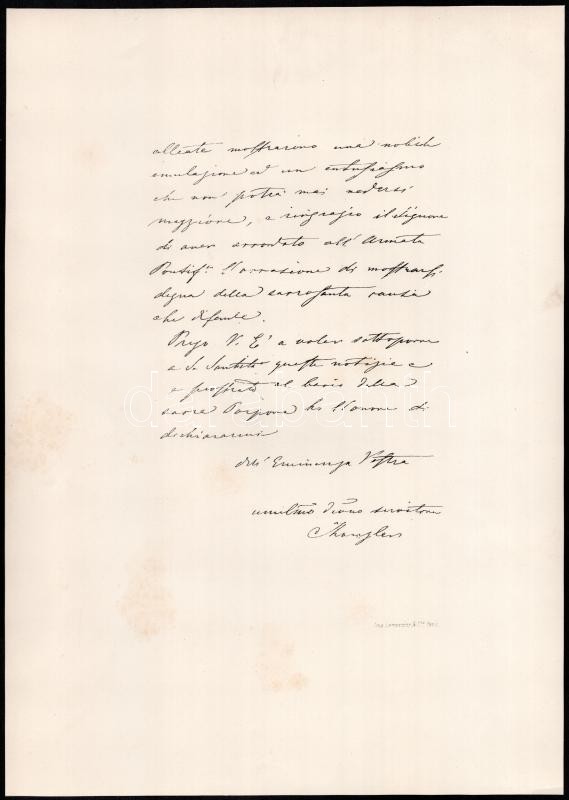 alleate mostrarono una nobile
emulazione ed un entusiasmo
che non potrà mai vedersi
maggiore, e ringrazio il Signore
di aver accordato all' Armata
Pontif.ª l'occasione di mostrarsi
degna della sacrosanta causa
che difende.
Prego V. E. a voler sottoporre
a Sua Santità queste notizie e
e prostrato al bacio della
sacra Porpora ho l'onore di
dichiararmi
dell' Eminenza Vostra
umilmo divmo servitore
Kanzler
Imp. Lemercier & Cie Paris
darabanth